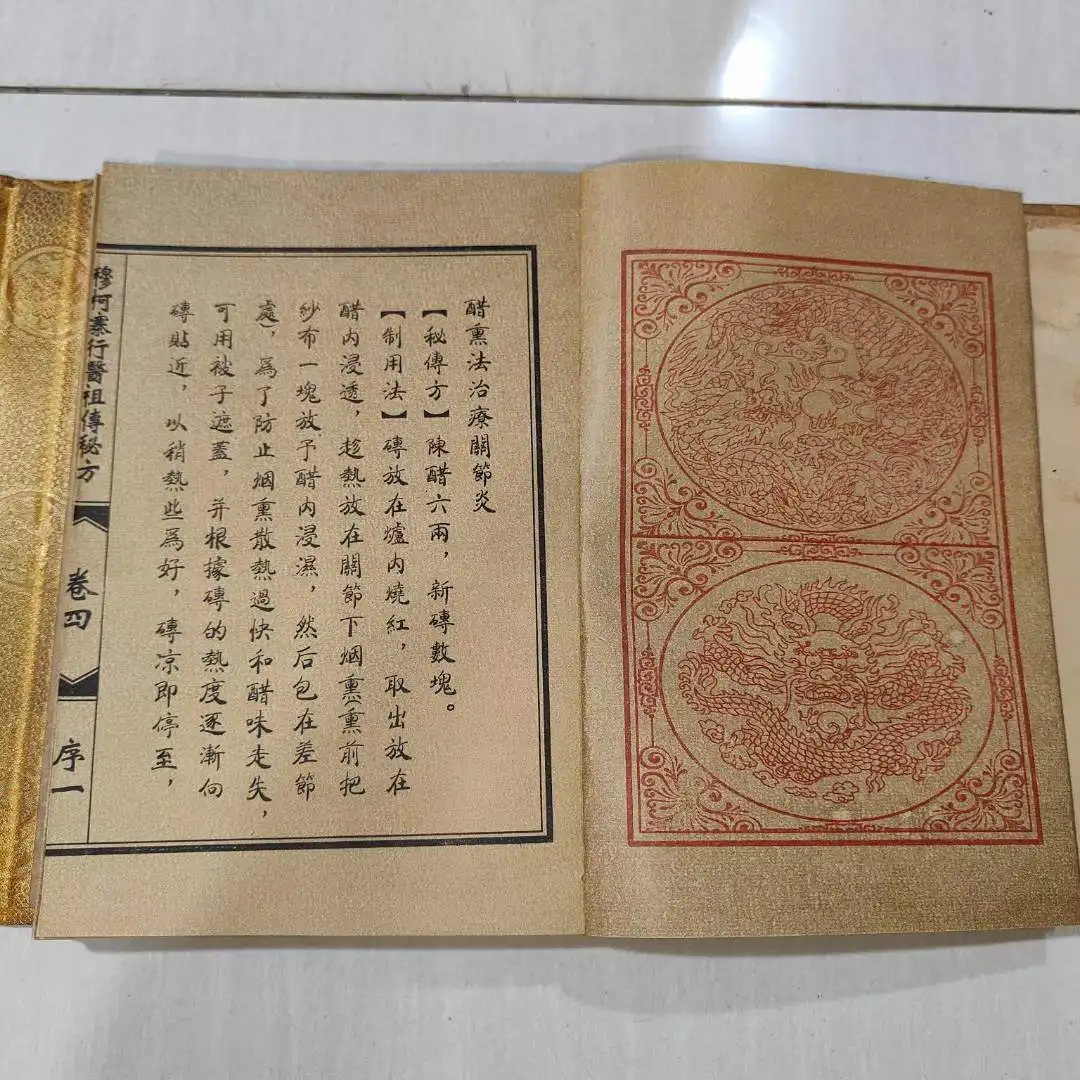 醋熏法治療關節炎
【秘傳方】陳醋六兩，新磚數塊。
【制用法】磚放在爐內燒紅，取出放在
醋內浸透，趁熱放在關節下烟熏熏前把
紗布一塊放予醋內浸濕，然后包在差節
處，爲了防止烟熏散熱過快和醋味走失，
可用被子遮蓋，并根據磚的熱度逐漸向
磚貼近，以稍熱些爲好，磚凉即停至，
穆柯寨行醫祖傳秘方
卷四
序一